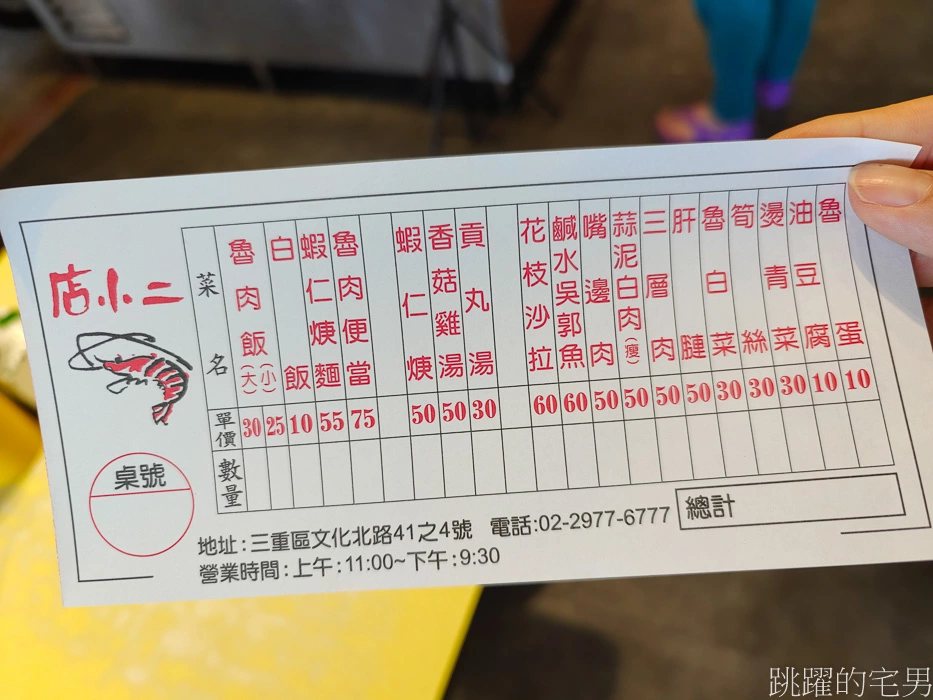 店小二
桌號
菜名
單價
數量
魯肉飯(大) 30
(小) 25
白飯 10
蝦仁焿麵 55
魯肉便當 75
蝦仁焿 50
香菇雞湯 50
貢丸湯 30
花枝沙拉 60
鹹水吳郭魚 60
嘴邊肉 50
蒜泥白肉(瘦) 50
三層肉 50
肝腱 50
魯白菜 30
筍絲 30
燙青菜 30
油豆腐 10
魯蛋 10
地址:三重區文化北路41之4號 電話:02-2977-6777
營業時間:上午:11:00~下午:9:30
總計
跳躍的宅男